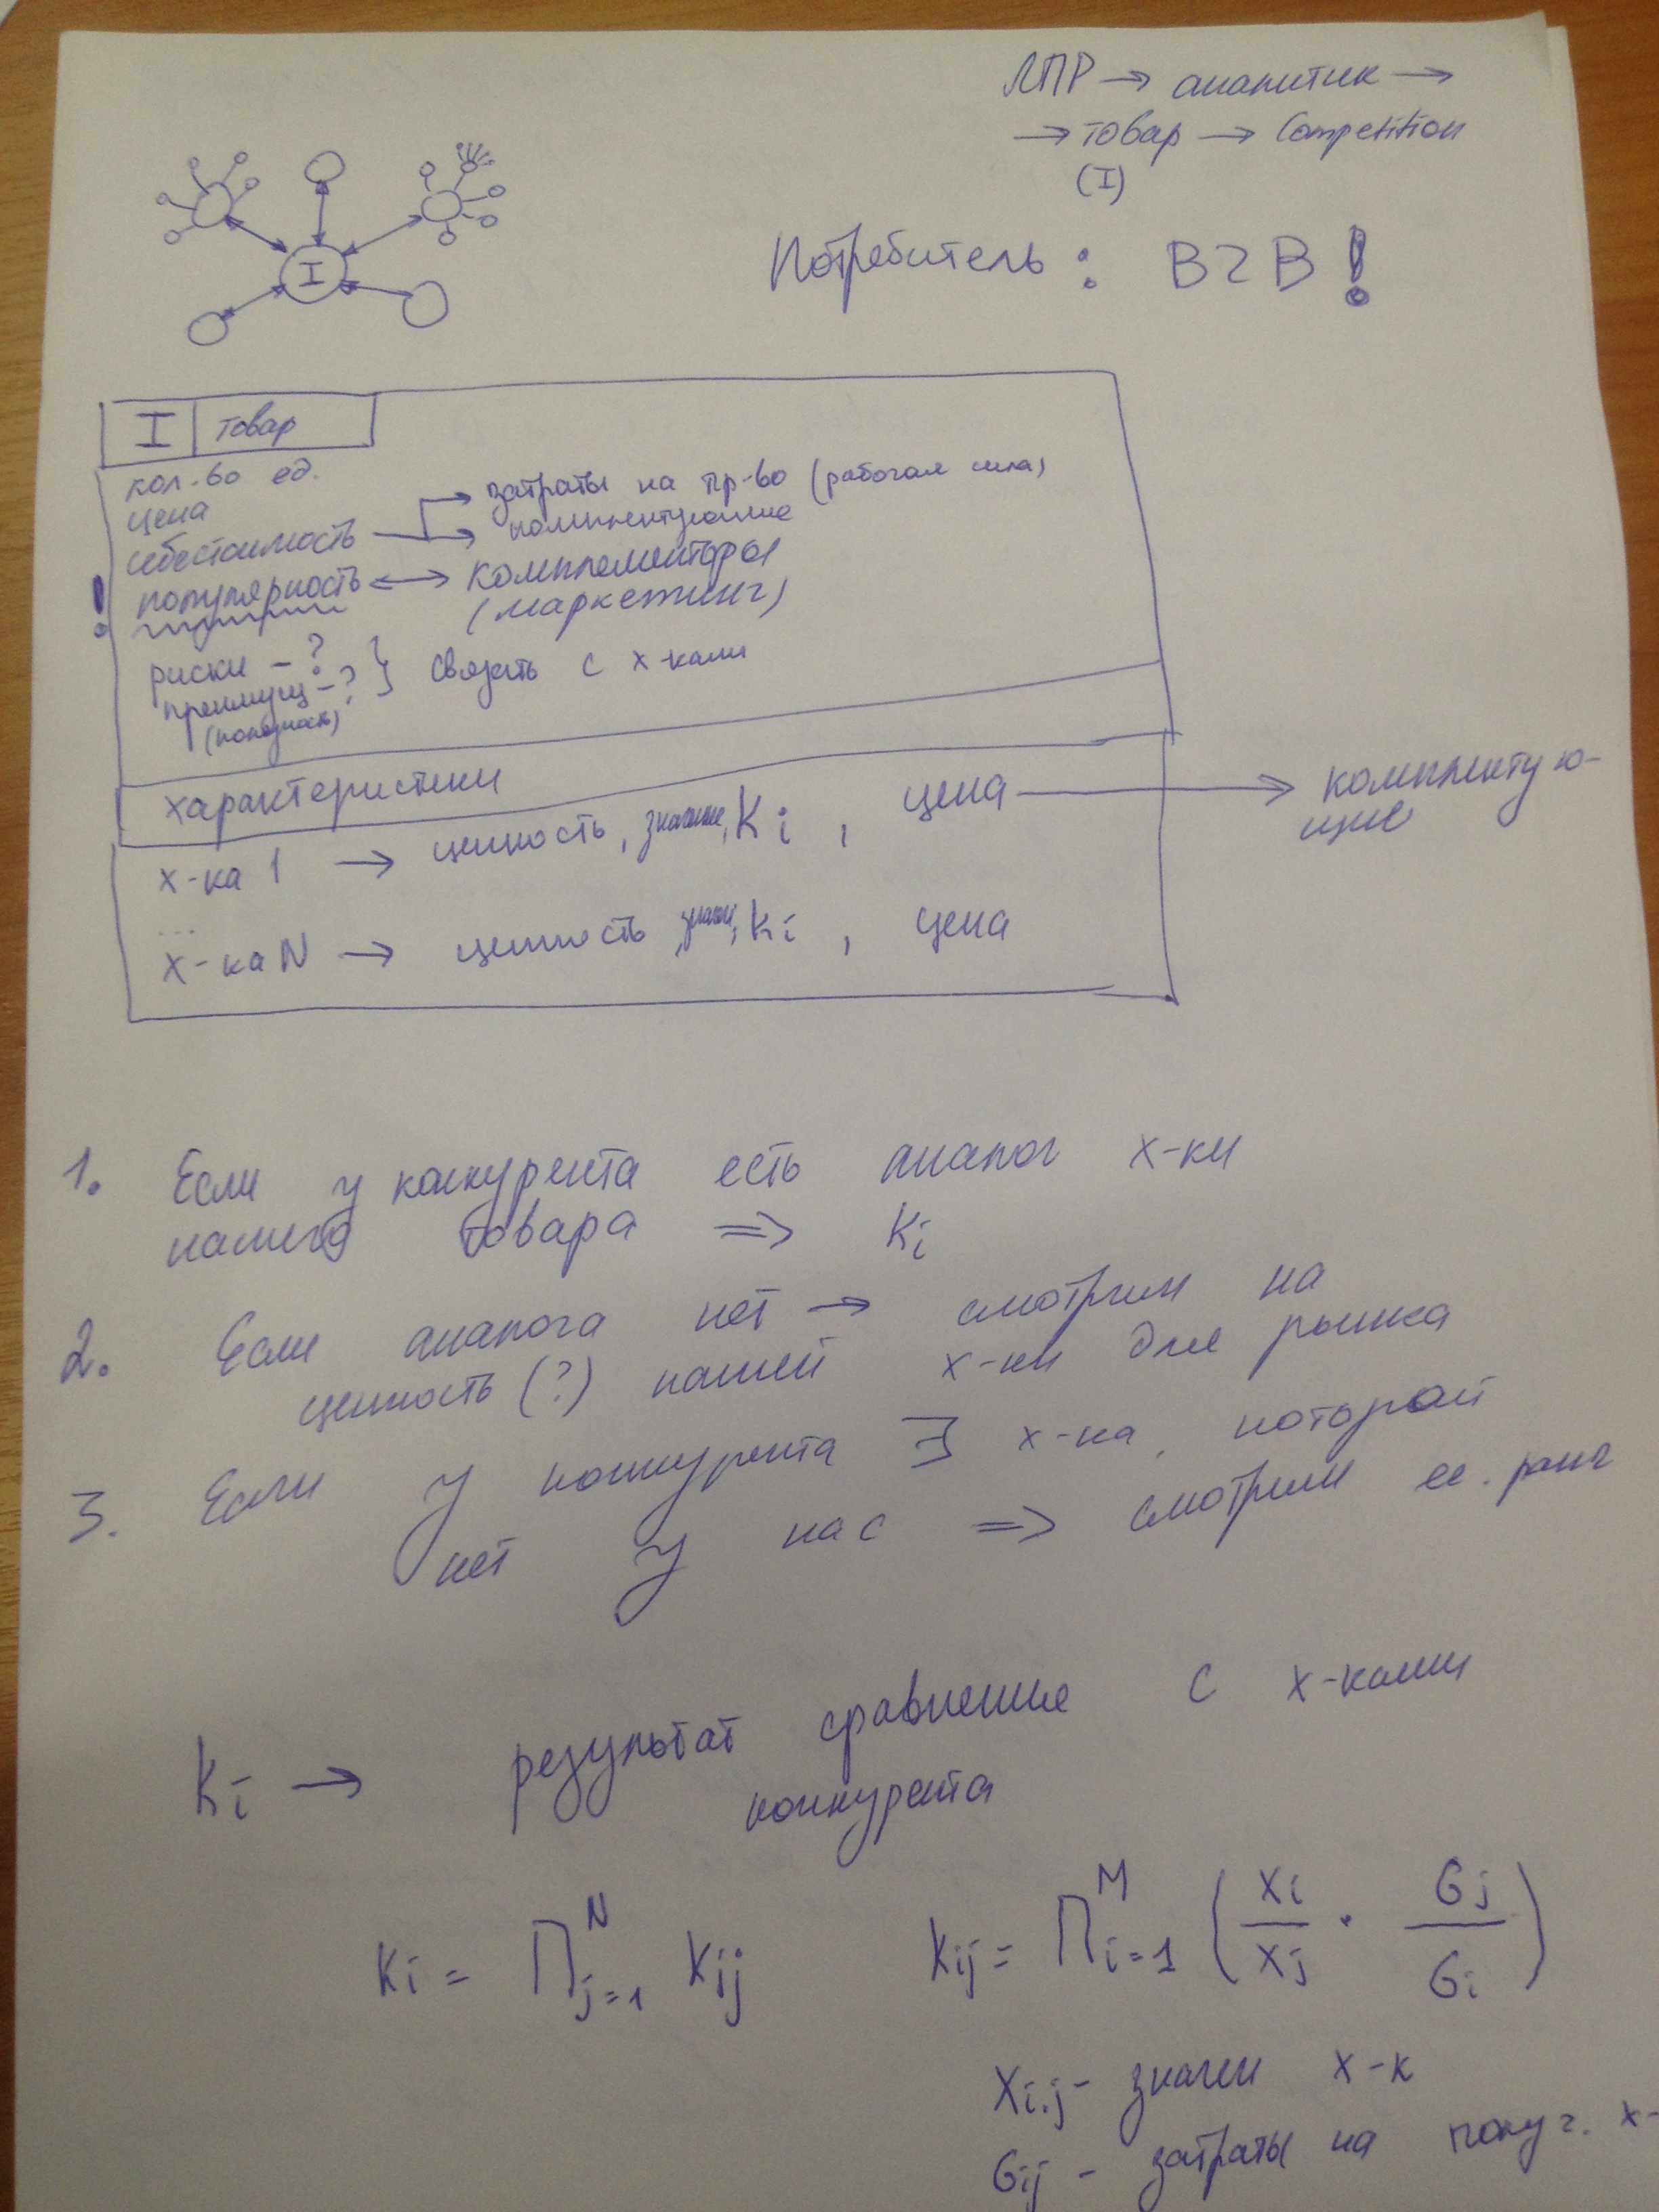 ЛПР → аналитик →
→ товар → Competition
(I)
Потребитель : B2B !
I
I товар
кол-во ед.
цена
себестоимость → затраты на пр-во (рабочая сила)
→ комплектующие
! популярность ↔ комплементоры
(маркетинг)
риски - ?
преимущ - ? } связать с х-ками
(полезность)
характеристики
х-ка 1 → ценность, значение, Ki , цена → комплектую-
щие
...
х-ка N → ценность, значен, Ki , цена
1. Если у конкурента есть аналог х-ки
нашего товара => Ki
2. Если аналога нет → смотрим на
ценность (?) нашей х-ки для рынка
3. Если у конкурента ∃ х-ка, которой
нет у нас => смотрим ее ранг
Ki → результат сравнение с х-ками
конкурента
Ki = ∏ᴺj=1 Kij
Kij = ∏ᴹi=1 (Xi/Xj · Gj/Gi)
Xi,j - значен х-к
Gij - затраты на получ. х-